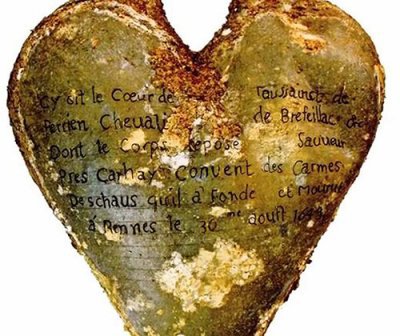 Cy Git le Cœur de Toussainst de
Perrien Chevali de Brefeillac
Dont le Corps Repose Sauveur
Pres Carhay Convent des Carmes
Deschaus quil a Fondé et Mouru
á Rennes le 30 doust